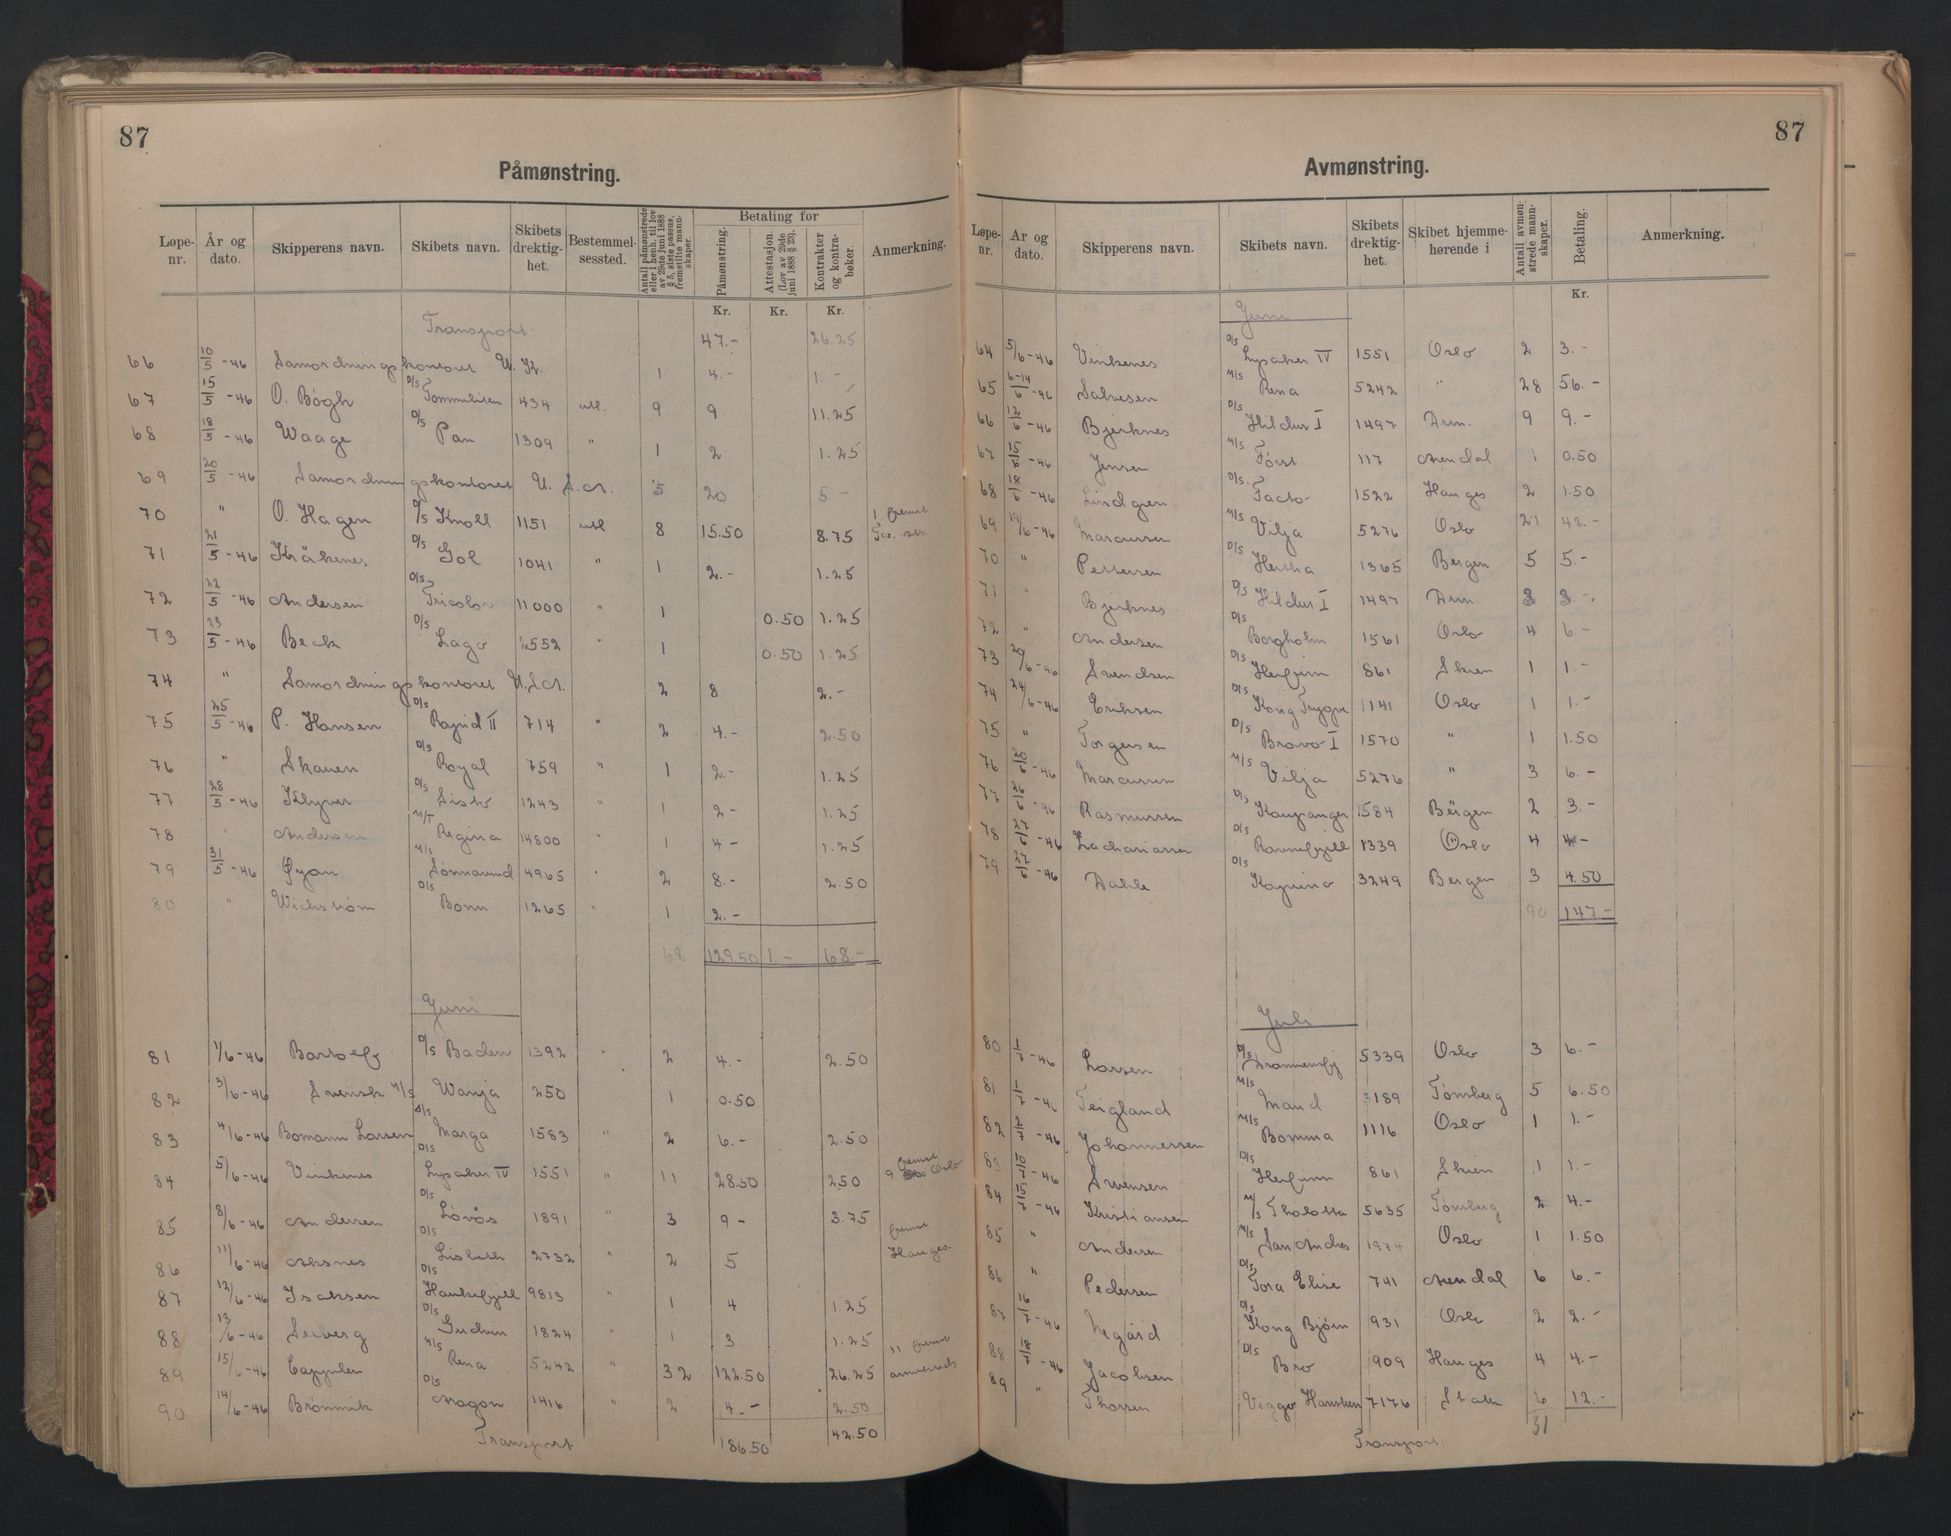 87
Påmønstring.
Løpe-nr. | År og dato. | Skipperens navn. | Skibets navn. | Skibets drektig-het. | Bestemmel-sessted. | Antall påmønstrede eller i henh. til lov av 29de juni 1888 § 5, siste passus, fremstilte mann-skaper. | Betaling for | Påmønstring. | Attestasjon (Lov av 29de juni 1888 § 23). | Kontrakter og kontra-bøker. | Anmerkning.
Kr. Kr. Kr.
Transport. 47.- 26.25
66 10/5-46 Samordningskontoret U. K. 1 4.- 1.-
67 15/5-46 O. Bøgh D/S Tommeliten 434 utl. 9 9 11.25
68 18/5-46 Waage D/S Pan 1309 " 1 2 1.25
69 20/5-46 Samordningskontoret U.S.A. 5 20 5-
70 " O. Hagen D/S Knoll 1151 utl 8 15.50 8.75 1 fremst
71 21/5-46 Kråkenes D/S Gol 1041 " 1 2.- 1.25
72 22/5-46 Andersen D/S Tricolor 11000 " 1 0.50 1.25
73 23/5-46 Beck D/S Lago 2552 " 1 0.50 1.25
74 " Samordningskontoret U.S.A. 2 8 2.-
75 25/5-46 P. Hansen D/S Ragnid II 714 " 2 4.- 2.50
76 " Skauen D/S Royal 759 " 1 2.- 1.25
77 28/5-46 Klyver D/S Sisto 1243 " 1 2- 1.25
78 " Andersen M/T Regina 14800 " 1 4- 1.25
79 31/5-46 Øyan M/S Sønnavind 4965 " 2 8.- 2.50
80 " Wickstrøm D/S Bonn 1265 " 1 2.-
68 129.50 1.- 68.-
Juni
81 1/6-46 D/S Baden 1392 " 2 4.- 2.50
82 3/6-46 Svensk M/S Wanja 250 1 0.50
83 4/6-46 Bomann Larsen D/S Marga 1583 " 2 6.- 2.50
84 5/6-46 Vinkenes D/S Lysaker IV 1551 " 11 28.50 2.50 9 fremst Oslo
85 8/6-46 Andersen D/S Løvås 1891 " 3 9- 3.75
86 11/6-46 Aksnes D/S Lisbeth 2732 " 2 5 fremst Hauges.
87 12/6-46 Isaksen D/S Haukefjell 9813 " 1 4 1.25
88 13/6-46 Seeberg D/S Gudvin 1824 " 1 3 1.25
89 15/6-46 Cappelen M/S Rena 5242 " 32 122.50 26.25 11 fremst
90 14/6-46 Brønmik D/S Aragon 1416 " 2 4.- 2.50
Transport 186.50 42.50
87
Avmønstring.
Løpe-nr. | Ar og dato. | Skipperens navn. | Skibets navn. | Skibets drektig-het. | Skibet hjemme-hørende i | Antall avmøn-strede mann-skaper. | Betaling. | Anmerkning.
Kr.
Juni
64 5/6-46 Vinkenes D/S Lysaker IV 1551 Oslo 2 3.-
65 6-14/6-46 Salvesen M/S Rena 5242 " 28 56.-
66 12/6-46 Bjerknes D/S Hildur I 1497 Drm. 9 9.-
67 15/6-46 Jensen M/S Først 117 Arendal 1 0.50
68 18/6-46 Lindgren D/S. Facto 1522 Hauges 2 1.50
69 19/6-46 Marcussen M/S Vilja 5276 Oslo 21 42.-
70 " Pettersen D/S Hertha 1365 Bergen 5 5.-
71 " Bjerknes D/S Hildur I 1497 Drm 3 3.-
72 " Andersen D/S Borgholm 1561 Oslo 4 6.-
73 20/6-46 Svendsen D/S Herfinn 861 Skien 1 1.-
74 24/6-46 Eriksen D/S Kong Trygve 1141 Oslo 1 1.-
75 " Torgersen D/S Bravo I 1570 " 1 1.50
76 25/6-46 Marcussen M/S Vilja 5276 " 3 6.-
77 26/6-46 Rasmussen D/S Kaupanger 1584 Bergen 2 3.-
78 27/6-46 Zachariassen D/S Ravnefjell 1339 Oslo 4 4-
79 27/6-46 Dahle D/S Kaprino 3249 Bergen 3 4.50
90 147.-
Juli
80 1/7-46 Larsen D/S Drammensfj 5339 Oslo 3 6.-
81 1/7-46 Teigland M/S Maud 3189 Tønsberg 5 6.50
82 2/7-46 Johannessen M/S Bomma 1116 Oslo 1 1.-
83 10/7-46 Svensen D/S Herfinn 861 Skien 1 1.-
84 12/7-46 Kristiansen M/S Tholotta 5635 Tønsberg 2 4.-
85 " Andersen M/S San Andres 1974 Oslo 1 1.50
86 " Pedersen D/S Tora Elise 741 Arendal 6 6.-
87 16/7-46 Negård D/S Kong Bjørn 931 Oslo 2 2.-
88 18/7-46 Jacobsen D/S Bro 909 Hauges 4 4.-
89 " Thorsen Viggo Hansteen 7176 Staten 6 12.-
31
Transport.